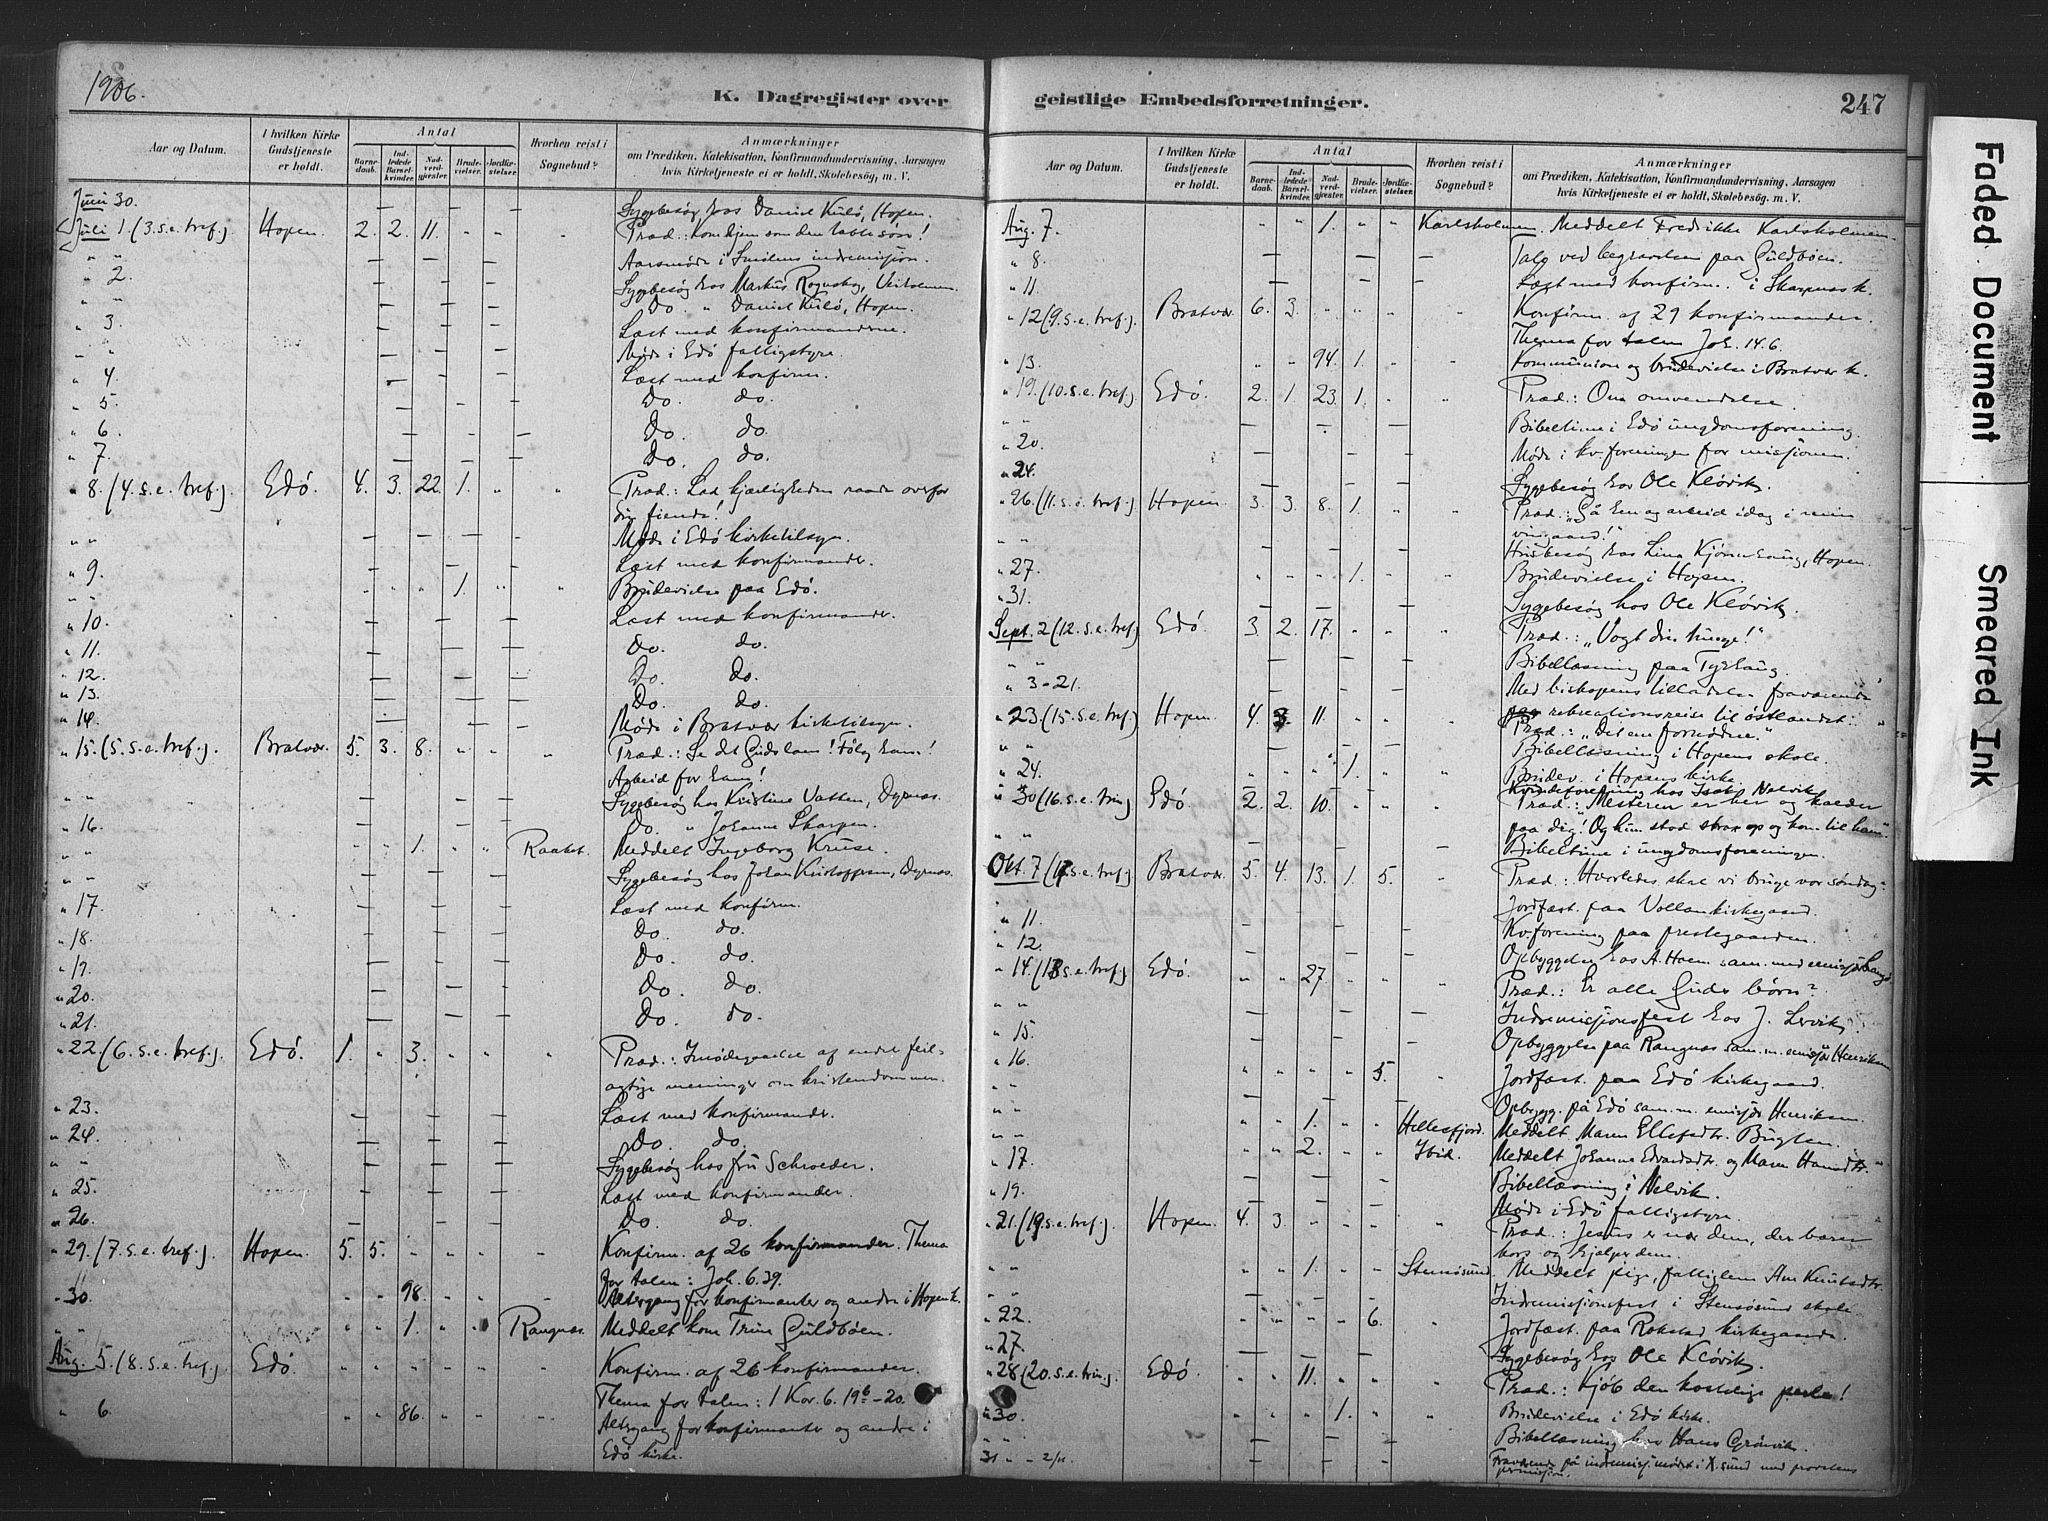 1906.
K. Dagregister over
Aar og Datum.
I hvilken Kirke Gudstjeneste er holdt.
Antal
Barne-daab.
Ind-ledede Barsel-kvinder.
Nad-verd-gjester.
Brude-vielser.
Jordfæ-stelser.
Hvorhen reist i Sognebud?
Anmærkninger
om Prædiken, Katekisation, Konfirmandundervisning, Aarsagen
hvis Kirketjeneste ei er holdt, Skolebesøg, m. V.
Juni 30. — — — — — Sygebesøg hos Daniel Kulø, Hopen.
Juli 1. (3. s. e. tref.) Hopen. 2. 2. 11. " " " Præd.: Kom hjem som den tabte søn!
" " — — — — Aarsmøde i Smølens indremisjon.
" 2. — — — — Sygebesøg hos Markus Rognskog, Veiholmen.
" " — — — — Do. " Daniel Kulø, Hopen.
" 3. — — — — Læst med konfirmanderne.
" " — — — — Møde i Edø fattigstyre.
" 4. — — — — Læst med konfirm.
" 5. — — — — Do. do.
" 6. — — — — Do. do.
" 7. — — — — Do. do.
" 8. (4. s. e. tref.) Edø. 4. 3. 22. 1. " " Præd.: Lad kjærligheden raade overfor
din fiende!
" " — — — — Møde i Edø kirketilsyn.
" 9. — — — — Læst med konfirmander.
" " " " " 1. " " Brudevielse paa Edø.
" 10. — — — — Læst med konfirmander.
" 11. — — — — Do. do.
" 12. — — — — Do. do.
" 13. — — — — Do. do.
" 14. — — — — Møde i Bratvær kirketilsyn.
" 15. (5. s. e. tref.) Bratvær. 5. 3. 8. " " " Præd.: Se det Guds lam! Følg ham!
Arbeid for ham!
" " — — — — Sygebesøg hos Kristine Vatten, Dyrnæs.
" 16. — — — — Do. " Johanne Skarpen.
" " " " 1. " " Raaket. Meddelt Ingeborg Kruse.
" " — — — — Sygebesøg hos Johan Kristoffersen, Dyrnæs.
" 17. — — — — Læst med konfirm.
" 18. — — — — Do. do.
" 19. — — — — Do. do.
" 20. — — — — Do. do.
" 21. — — — — Do. do.
" 22. (6. s. e. tref.) Edø. 1. " 3. " " " Præd.: Imødegaaelse af endel feil-
agtige meninger om kristendommen.
" 23. — — — — Læst med konfirmander.
" 24. — — — — Do. do.
" " — — — — Sygebesøg hos fru Schrøeder.
" 25. — — — — Læst med konfirmander.
" 26. — — — — Do. do.
" 29. (7. s. e. tref.) Hopen. 5. 5. " " " " Konfirm. af 26 konfirmander. Thema
for talen: Joh. 6.39.
" 30. " " 98. " " " Altergang for konfirmanter og andre i Hopen k.
" " " " 1. " " Rangnæs. Meddelt kone Trine Guldbøen.
Aug. 5. (8. s. e. tref.) Edø. " " " " " " Konfirm. af 26 konfirmander.
Thema for talen: 1 Kor. 6. 19b–20.
" 6. " " 86. " " " Altergang for konfirmanter og andre i
Edø kirke.
geistlige Embedsforretninger.
247
Aar og Datum.
I hvilken Kirke Gudstjeneste er holdt.
Antal
Barne-daab.
Ind-ledede Barsel-kvinder.
Nad-verd-gjester.
Brude-vielser.
Jordfæ-stelser.
Hvorhen reist i Sognebud?
Anmærkninger
om Prædiken, Katekisation, Konfirmandundervisning, Aarsagen
hvis Kirketjeneste ei er holdt, Skolebesøg, m. V.
Aug. 7. " " 1. " " Karlsholmen. Meddelt Fredrikke Karlsholmen.
" 8. — — — — — Tale ved begravelse paa Guldbøen.
" 11. — — — — — Læst med konfirm. i Skarpnes k.
" 12 (9. s. e. tref.). Bratvær 6. 3. " " " " Konfirm. af 29 konfirmander.
Thema for talen Joh. 14.6.
" 13. " " 94. 1. " " Kommunion og brudevielse i Bratvær k.
" 19. (10. s. e. tref.) Edø. 2. 1. 23. 1. " " Præd.: Om omvendelse.
" " — — — — Bibeltime i Edø ungdomsforening.
" 20. — — — — Møde i kv.foreningen for missjonen.
" 24. — — — — Sygebesøg hos Ole Kløvik.
" 26. (11. s. e. tref.) Hopen. 3. 3. 8. 1. " " Præd.: "Gå hen og arbeid idag i min
vingaard!"
" " — — — — Husbesøg hos Lina Kjørenhaug, Hopen.
" 27. " " " 1. " " Brudevielse i Hopen.
" 31. — — — — Sygebesøg hos Ole Kløvik.
Sept. 2 (12. s. e. tref.) Edø. 3. 2. 17. " " " Præd.: "Vogt din tunge!"
" " — — — — Bibellæsning paa Tyrhaug.
" 3–21. — — — — Med biskopens tilladelse fraværende
rekreationsreise til østlandet.
" 23. (15. s. e. tref.) Hopen. 4. 3. 11. " " " Præd.: "Det ene fornødne."
" " — — — — Bibellæsning i Hopens skole.
" 24. " " " 1. " " Brudev. i Hopens kirke.
Kvindeforening hos Isak Nelvik.
" 30 (16. s. e. trin.) Edø. 2. 2. 10. " " " Præd.: "Mesteren er her og kalder
paa dig! Og hun stod strax op og kom til ham".
" " — — — — Bibeltime i ungdomsforeningen.
Okt. 7 (17. s. e. tref.) Bratvær. 5. 4. 13. 1. 5. " Præd.: Hvorledes skal vi bruge vor søndag?
Jordfæst. paa Vollan kirkegaard.
" 11. — — — — Kv.forening paa prestegaarden.
" 12. — — — — Opbyggelse hos A. Hoem sam. med emisjær
" 14. (18 s. e. tref.) Edø. " " 27. " " " Præd.: Er alle Guds børn?
" " — — — — Indremissjonsfest hos J. Lervik.
" 15. — — — — Opbyggelse paa Rangnæs sam. m. emisjær Henriksen
" 16. " " " " 5. " Jordfæst. paa Edø kirkegaard.
" " — — — — Opbygg. på Edø sam. m. emisjær Henriksen.
" " " " 1. " " Hellesfjord. Meddelt Maren Ellefsdtr. Bugten.
" 17. " " 2. " " Ibid. Meddelt Johanne Edvardsdtr. og Maren Hansdtr.
" 19. — — — — Bibellæsning i Nelvik.
Møde i Edø fattigstyre.
" 21. (19 s. e. tref.) Hopen. 4. 3. " " " " Præd.: Jesus er nær dem, der bærer
kors og hjælper dem.
" " " " 1. " " Stensøsund. Meddelt pige, fattiglem Ane Knutsdtr.
— — — — Indremissjonsfest i Stensøsund skole.
" 22. " " " " 6. " Jordfæst. paa Rokstad kirkegaard.
" 27. — — — — Sygebesøg hos Ole Kløvik.
" 28 (20. s. e. trin.). Edø " " 11. " " " Præd.: Kjøb den kostelige perle!
" 30. " " " 1. " " Brudevielse i Edø kirke.
" " — — — — Bibellæsning hos Hans Grønvik.
31 – – 2/11. — — — — Fraværende på indremisj.mødet i K.sund med provstens
permission.
Faded Document
Smeared Ink